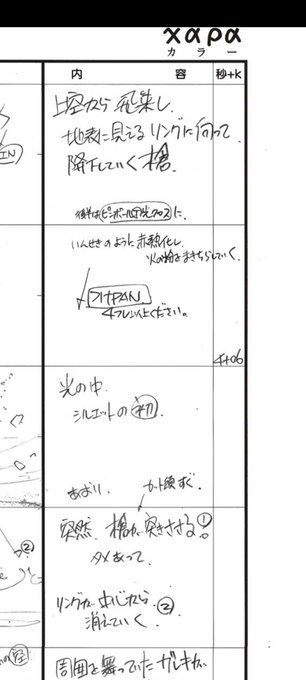 χαρα
カラー
内容 秒+K
上空から飛来し、
地表に見えるリングに向って
降下していく槍。
IN
に。
いんせきのように赤熱化し、
火の粉をまきちらしていく。
付PAN
4フレ以上ください。
4+06
光の中
シルエットの初
あおり。
カット頭すぐ。
突然、槍が突きささる①
タメあって
②
リングが中心から②
消えていく。
空
周囲を舞っていたガレキが、